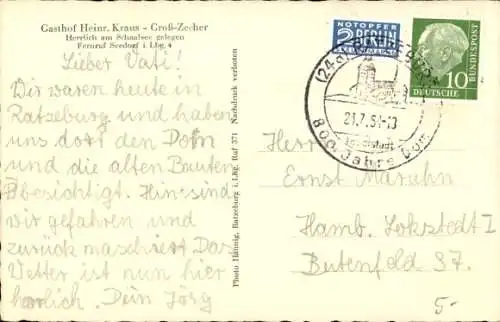 Gasthof Heinr. Kraus - Groß-Zecher
Herrlich am Schaalsee gelegen
Fernruf Seedorf i. Lbg. 4
Lieber Vati!
Wir waren heute in
Ratzeburg und haben
uns dort den Dom
und die alten Bauten
besichtigt. Hin sind
wir gefahren und
zurück maschiert Das
Wetter ist nun hier
herrlich. Dein Jörg
Photo Hännig, Ratzeburg i. Lbg. Raf 371 Nachdruck verboten
NOTOPFER
2 BERLIN
STEUERMARKE
10
DEUTSCHE
BUNDESPOST
(24a)
21.7.54-13
800 Jahre Dom
Herrn
Ernst Maruhn
Hamb. Lokstedt I
Butenfeld 37.
5-